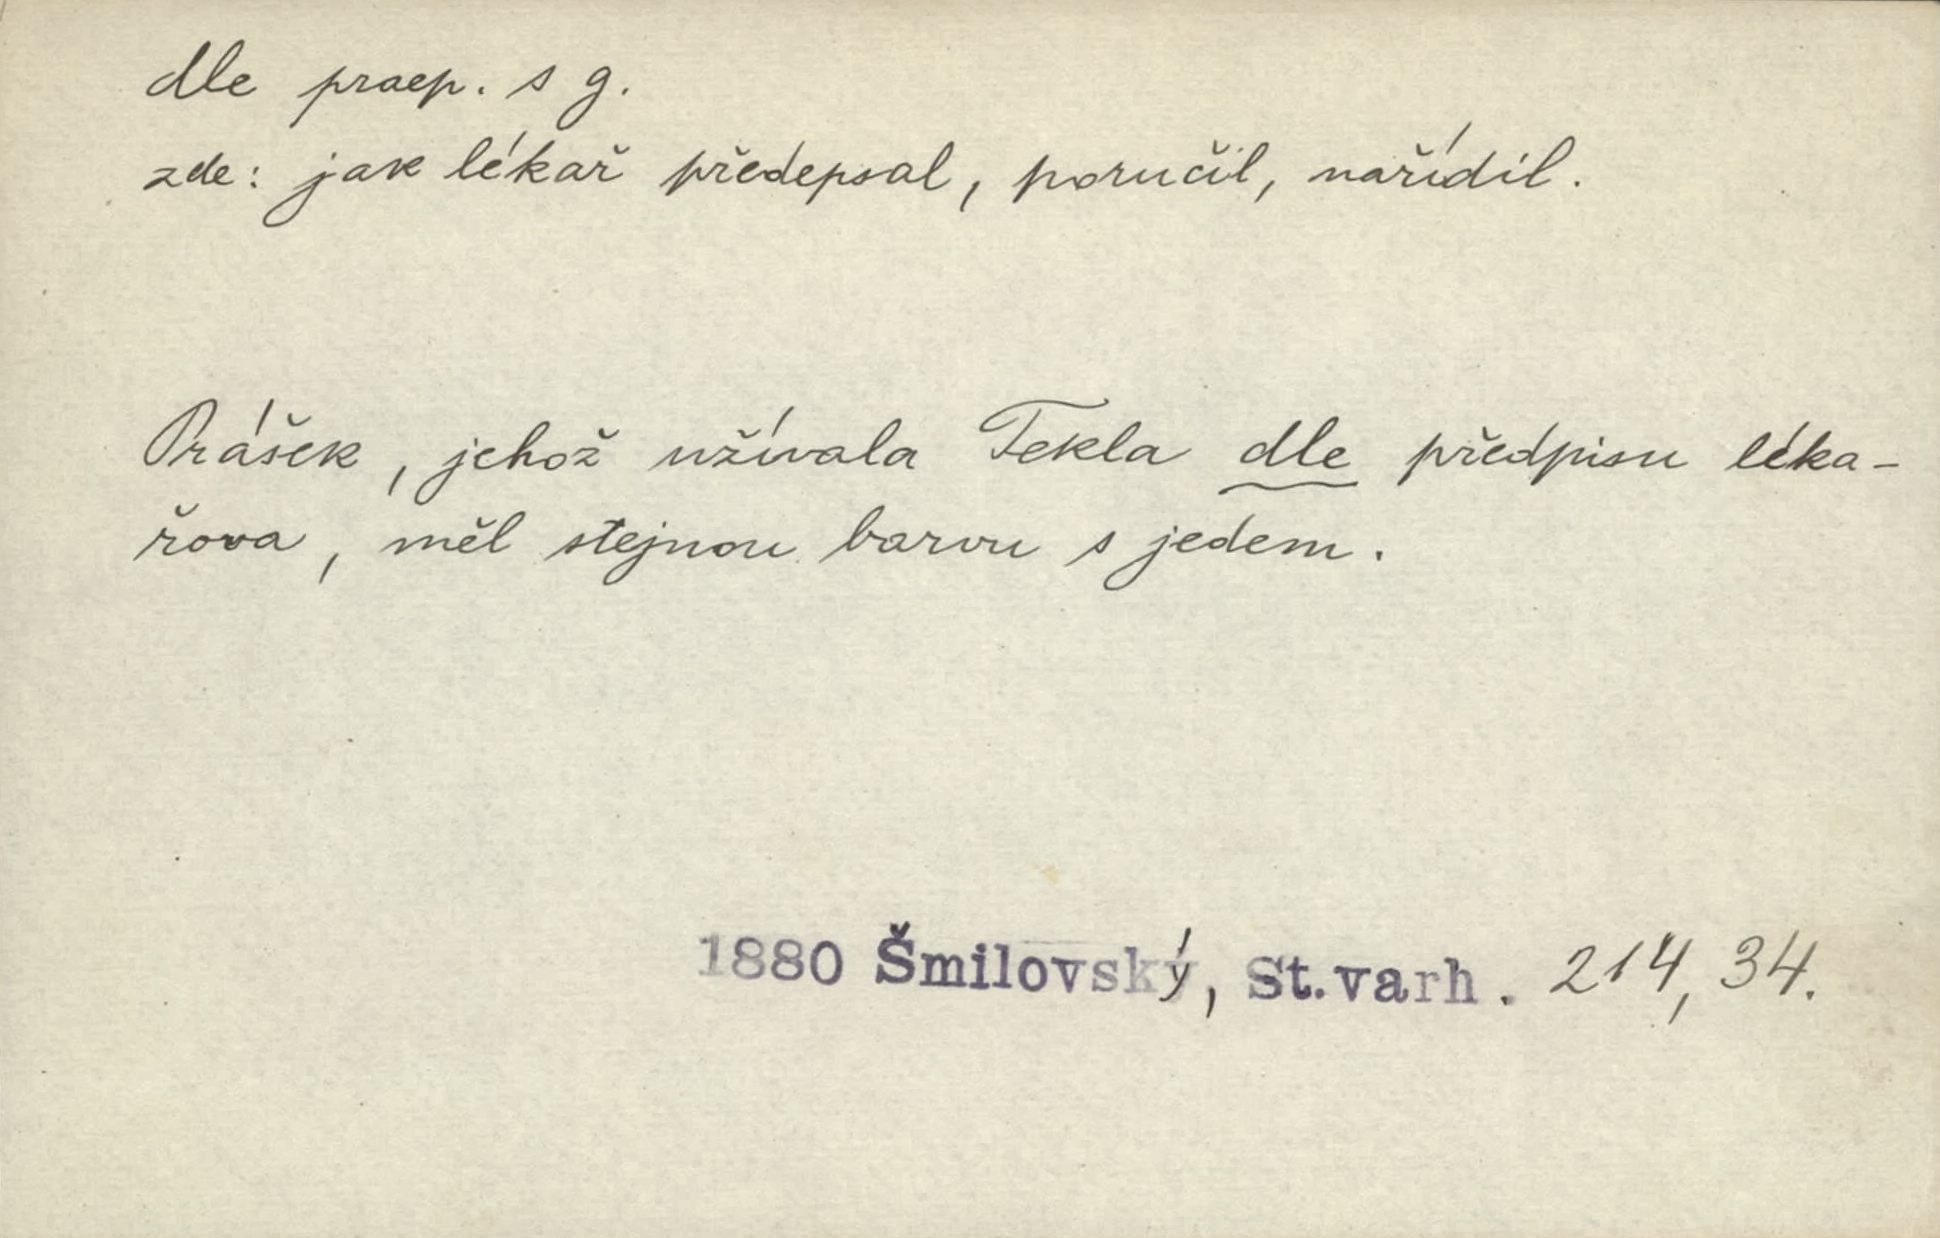 dle praep. s g.
zde: jak lékař předepsal, poručil, nařídil.
Prášek, jehož užívala Tekla dle předpisu léka-
řova, měl stejnou barvu s jedem.
1880 Šmilovský, St.varh. 214, 34.